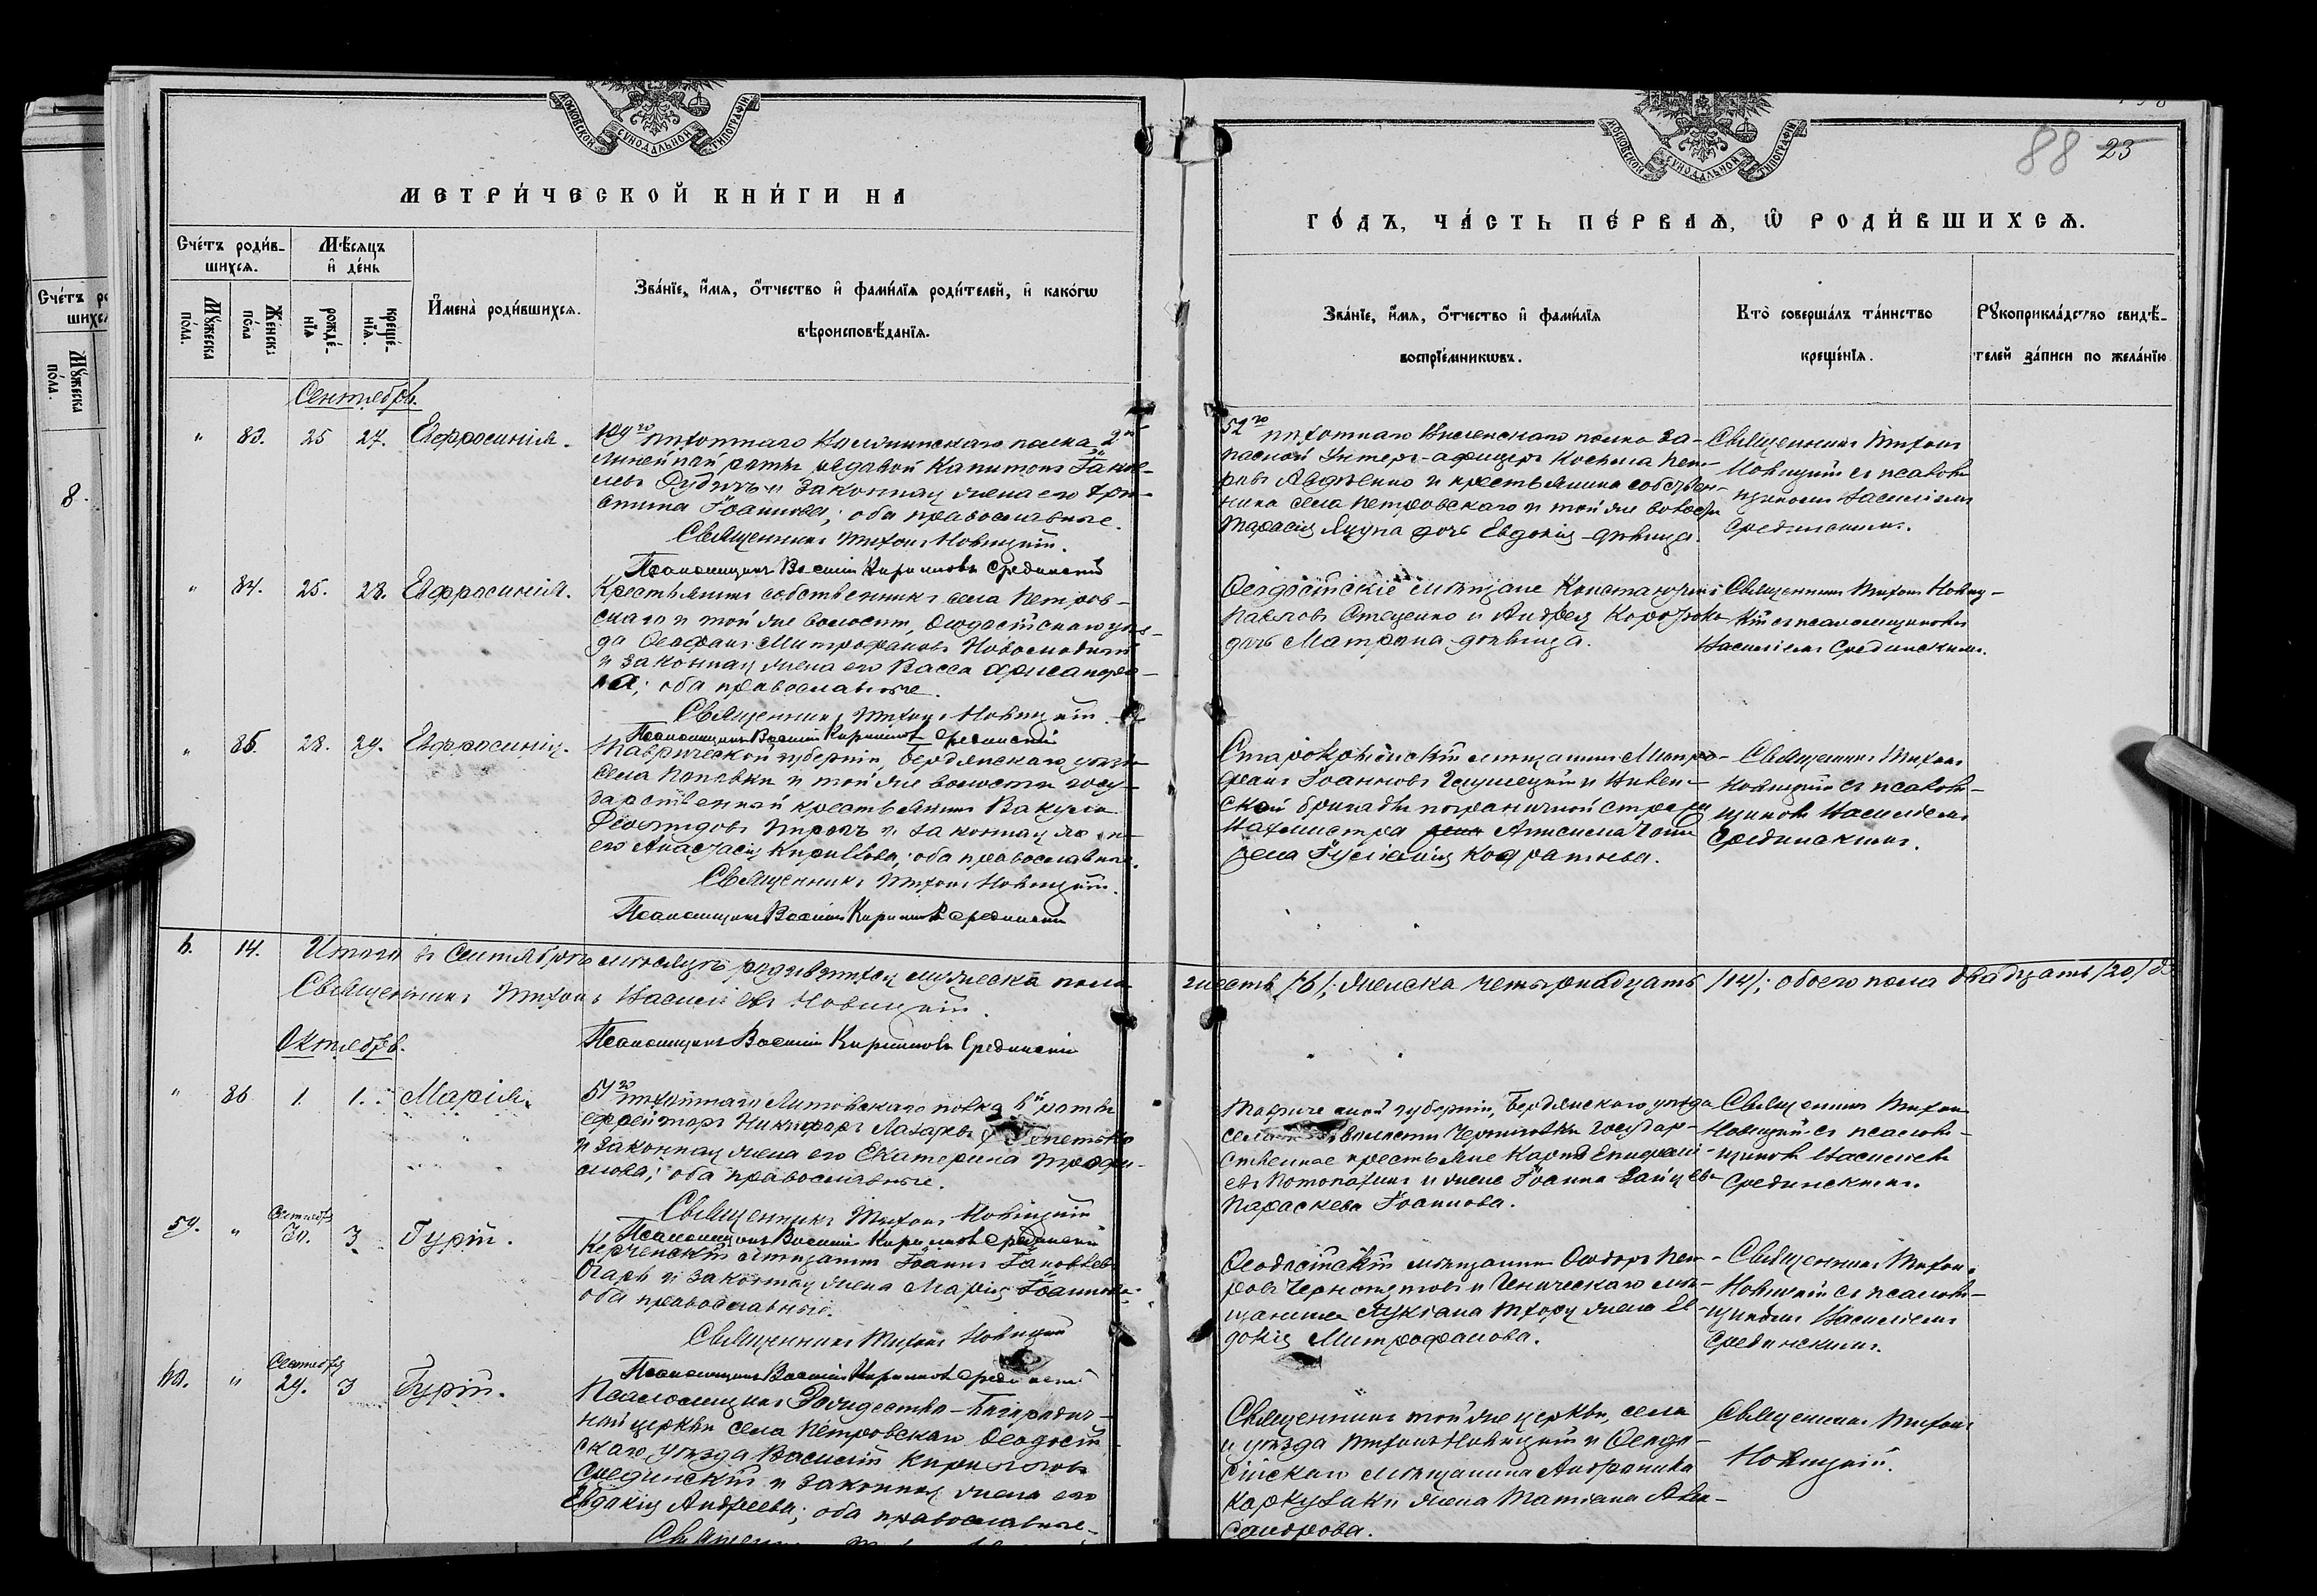 МОСКОВСКОЙ СѴНОДАЛЬНОЙ ТИПОГРАФІИ
МЕТРИ́ЧЕСКОЙ КНИ́ГИ НА
Сче́тъ роди́в-
шихсѧ.
Мѣ́сѧцъ
и҆ де́нь
Мꙋ́жеска
по́ла.
Же́нска
по́ла
рожде́-
нїѧ
креще́-
нїѧ.
И҆мена̀ роди́вшихсѧ.
Зва́нїе, и҆́мѧ, ѻ҆́тчество и҆ фами́лїѧ роди́телей, и҆ како́гѡ
вѣроисповѣ́данїѧ.
Сентябрь.
" 83. 25 27. Евфросинія.
пѣхотнаго полка 2й
линейной роты рядовой Капитонъ
и законная жена его Хри-
стина Іоаннова; оба православные.
Священникъ Тихонъ Новицкій.
Псаломщикъ Василій Кирилловъ Срединскій
" 84. 25. 28. Евфросинія.
Крестьянинъ собственникъ села Петров-
скаго и той же волости, Ѳеодосійскаго уѣз-
да Ѳеофанъ Митрофановъ
и законная жена его Васса Александро-
ва; оба православные.
Священникъ Тихонъ Новицкій.
Псаломщикъ Василій Кирилловъ Срединскій
" 85. 28. 29. Евфросинія.
Таврической губерніи, Бердянскаго уѣзда
села Поповки и той же волости госу-
дарственный крестьянинъ Вакула
и законная жена
его Анастасія Кириллова; оба православные.
Священникъ Тихонъ Новицкій.
Псаломщикъ Василій Кирилловъ Срединскій
6. 14. Итого въ Сентябрѣ мѣсяцѣ родившихся мужеска пола
Священникъ Тихонъ Василіевъ Новицкій.
Псаломщикъ Василій Кирилловъ Срединскій
Октябрь.
" 86 1. 1. Марія.
51го пѣхотнаго Литовскаго полка 6й роты
ефрейторъ Никифоръ Лазаревъ
и законная жена его Екатерина Трофи-
мова; оба православные.
Священникъ Тихонъ Новицкій
Псаломщикъ Василій Кирилловъ Срединскій
59. " Сентябр 30. 3 Гурій.
Керченскій мѣщанинъ Іоаннъ Іаковлевъ
Огарь и законная жена Марія Іоаннова
оба православные.
Священникъ Тихонъ Новицкій
Псаломщикъ Василій Кирилловъ Срединскій
60. " Сентябр 29. 3 Гурій.
Псаломщикъ Рождество-Богородич-
ной церкви села Петровскаго Ѳеодосій-
скаго уѣзда Василій Кирилловъ
Срединскій и законная жена его
Евдокія Андреева; оба православные
МОСКОВСКОЙ СѴНОДАЛЬНОЙ ТИПОГРАФІИ
88 23
ГО́ДЪ, ЧА́СТЬ ПЕ́РВАѦ, Ѽ РОДИ́ВШИХСѦ.
Зва́нїе, и҆́мѧ, ѻ҆́тчество и҆ фами́лїѧ
воспрїе́мникѡвъ.
Кто̀ соверша́лъ та́инство
креще́нїѧ.
Рꙋкоприкла́дство свидѣ́-
телей за́писи по жела́нїю
52го пѣхотнаго Виленскаго полка за-
пасной Унтеръ-афицеръ Косьма Пет-
ровъ Авдѣенко и крестьянина собствен-
ника села Петровскаго и той же волости
Тарасія Яцуна дочь Евдокія дѣвица.
Священникъ Тихонъ
Новицкій съ псалом-
щикомъ Василіемъ
Срединскимъ.
Ѳеодосійскіе мѣщане Константинъ
Павловъ Стеценко и Андрея
дочь Матрона дѣвица.
Священникъ Тихонъ Новиц-
кій съ псаломщикомъ
Василіемъ Срединскимъ.
Старокрымскій мѣщанинъ Митро-
фанъ Іоанновъ и
ской бригады пограничной стражи
Вахмистра
жена
Священникъ Тихонъ
Новицкій съ псалом-
щикомъ Василіемъ
Срединскимъ.
шесть /6/; женска четырнадцать /14/; обоего пола двадцать /20/ д
Таврической губерніи, Бердянскаго уѣзда
села и волости Черниговки государ-
ственные крестьяне Карпъ
и жена Іоанна
Параскева Іоаннова.
Священникъ Тихонъ
Новицкій съ псалом-
щикомъ Василіемъ
Срединскимъ.
Ѳеодосійскій мѣщанинъ Ѳеодоръ Пет-
ровъ и Геническаго мѣ-
щанина Лукіана жена Ев-
докія Митрофанова.
Священникъ Тихонъ
Новицкій съ псалом-
щикомъ Василіемъ
Срединскимъ.
Священникъ той же церкви, села
и уѣзда Тихонъ Новицкій и Ѳеодо-
сійскаго мѣщанина Андроника
жена Татіана Алек-
сандрова.
Священникъ Тихонъ
Новицкій.
Сче́тъ
шихсѧ
Мꙋ́жеска
по́ла.
8.